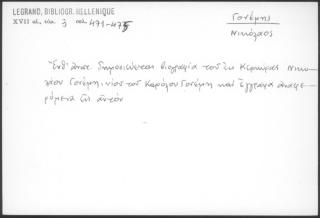 LEGRAND, BIBLIOGR. HELLENIQUE
XVII al. 3 471-475
Γονέμης
Νικόλαος
Ἔνθ' ἀνωτ. δημοσιεύεται βιογραφία τοῦ ἐκ Κερκύρας Νικο-
λάου Γονέμη, υἱοῦ τοῦ Καρόλου Γονέμη καὶ ἔγγραφα ἀναφε-
ρόμενα εἰς αὐτόν